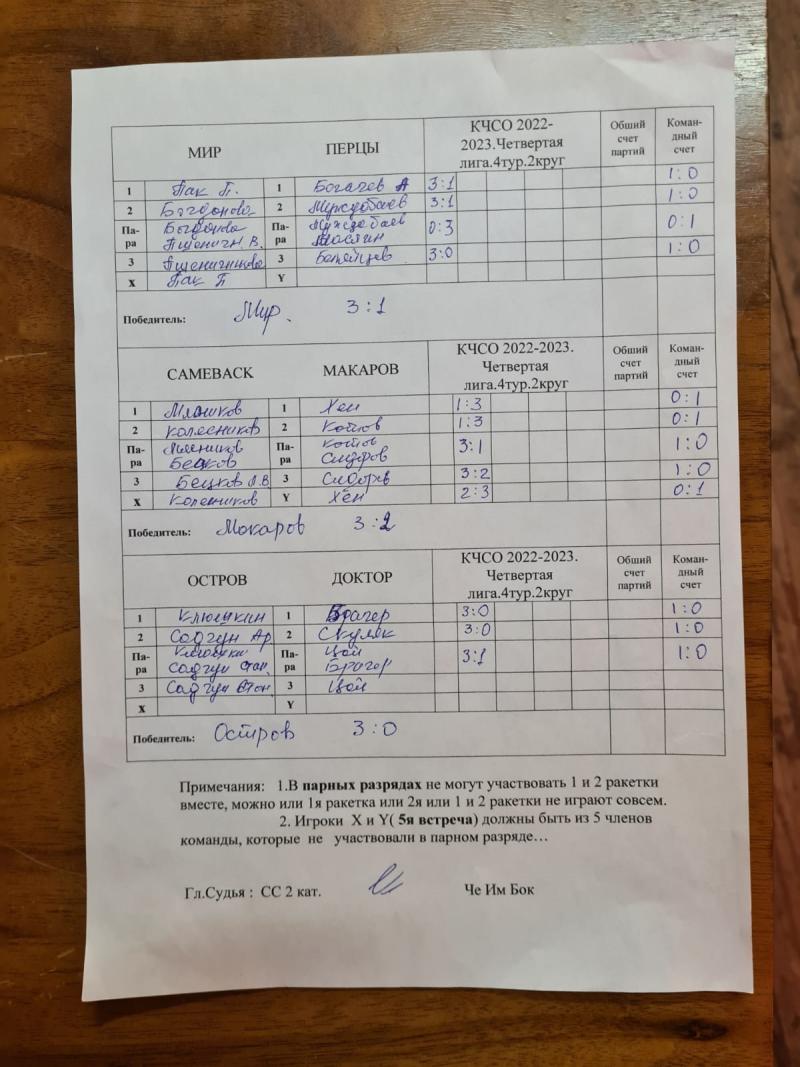 МИР ПЕРЦЫ КЧСО 2022-2023.Четвертая лига.4тур.2круг Общий счет партий Коман-дный счет
1 Пак П. 1 Богачев А 3:1 1:0
2 Богданова 2 3:1 1:0
Па-ра Богданова Пшеничн. В. Па-ра Маслин 0:3 0:1
3 Пшеничников 3 3:0 1:0
X Пак П Y
Победитель: Мир. 3:1
САМЕВАСК МАКАРОВ КЧСО 2022-2023. Четвертая лига.4тур.2круг Общий счет партий Коман-дный счет
1 1 Хен 1:3 0:1
2 Колесников 2 Котов 1:3 0:1
Па-ра Па-ра Котов Сидоров 3:1 1:0
3 3 Сидоров 3:2 1:0
X Колесников Y Хен 2:3 0:1
Победитель: Макаров 3:2
ОСТРОВ ДОКТОР КЧСО 2022-2023. Четвертая лига.4тур.2круг Общий счет партий Коман-дный счет
1 Клюшкин 1 3:0 1:0
2 Садгун Ар 2 3:0 1:0
Па-ра Садгун Па-ра Цой 3:1 1:0
3 Садгун 3 Цой
X Y
Победитель: Остров 3:0
Примечания: 1.В парных разрядах не могут участвовать 1 и 2 ракетки
вместе, можно или 1я ракетка или 2я или 1 и 2 ракетки не играют совсем.
2. Игроки X и Y( 5я встреча) должны быть из 5 членов
команды, которые не участвовали в парном разряде…
Гл.Судья : СС 2 кат. Че Им Бок